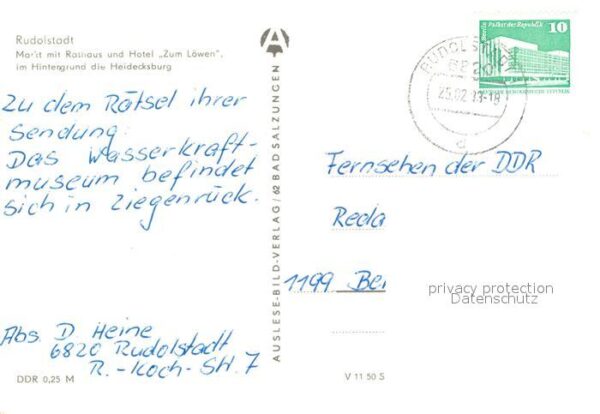 Rudolstadt
Markt mit Rathaus und Hotel „Zum Löwen",
im Hintergrund die Heidecksburg
Zu dem Rätsel ihrer
Sendung:
Das Wasserkraft-
museum befindet
sich in Ziegenrück.
Abs. D. Heine
6820 Rudolstadt
R.-Koch-Str. 7
DDR 0,25 M
AUSLESE-BILD-VERLAG / 62 BAD SALZUNGEN
A
Berlin Palast der Republik
10
RUDOLSTADT
6820
25.02.83-18
d
Fernsehen der DDR
Reda
1199 Ber
privacy protection
Datenschutz
V 11 50 S